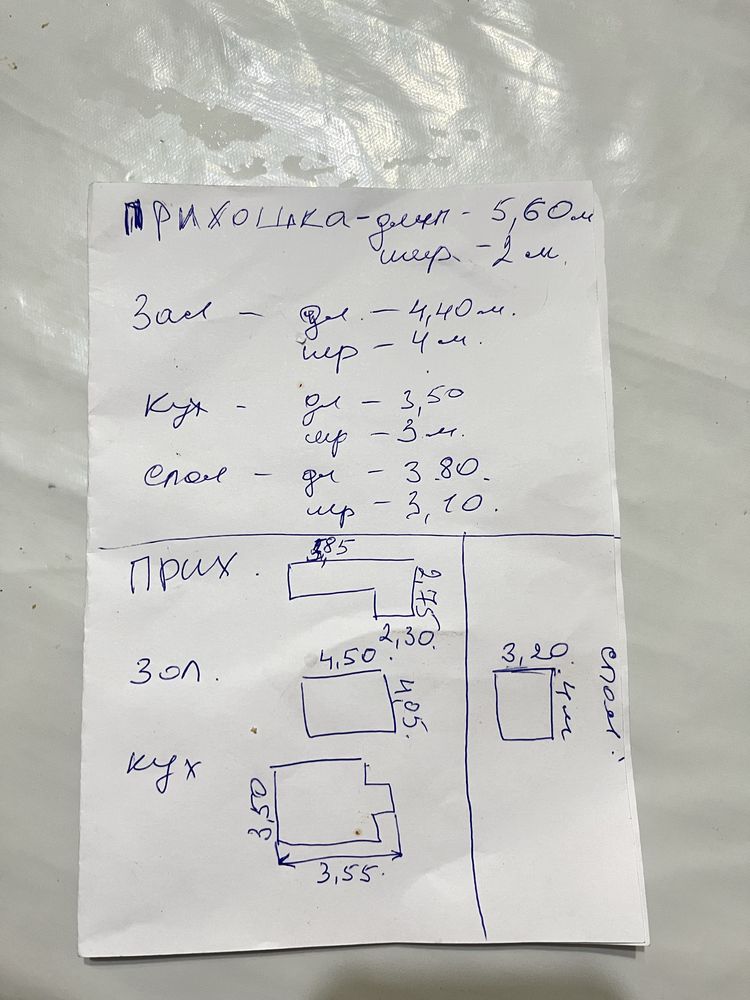 ПРИХОШКА - длин - 5,60 м
шир - 2 м.
Зал - дл. - 4,40 м.
шр - 4 м.
Кух - дл - 3,50
шр - 3 м.
спал - дл - 3.80.
шр - 3,10.
ПРИХ.
3,85
2,75
2,30.
ЗОЛ.
4,50.
4,05.
КУХ
3,50
3,55.
3,20.
4 м
спал.